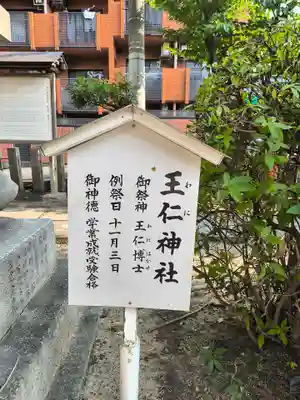 王仁神社
わに
御祭神 王仁博士
わに はかせ
例祭日 十一月三日
御神徳 学業成就受験合格